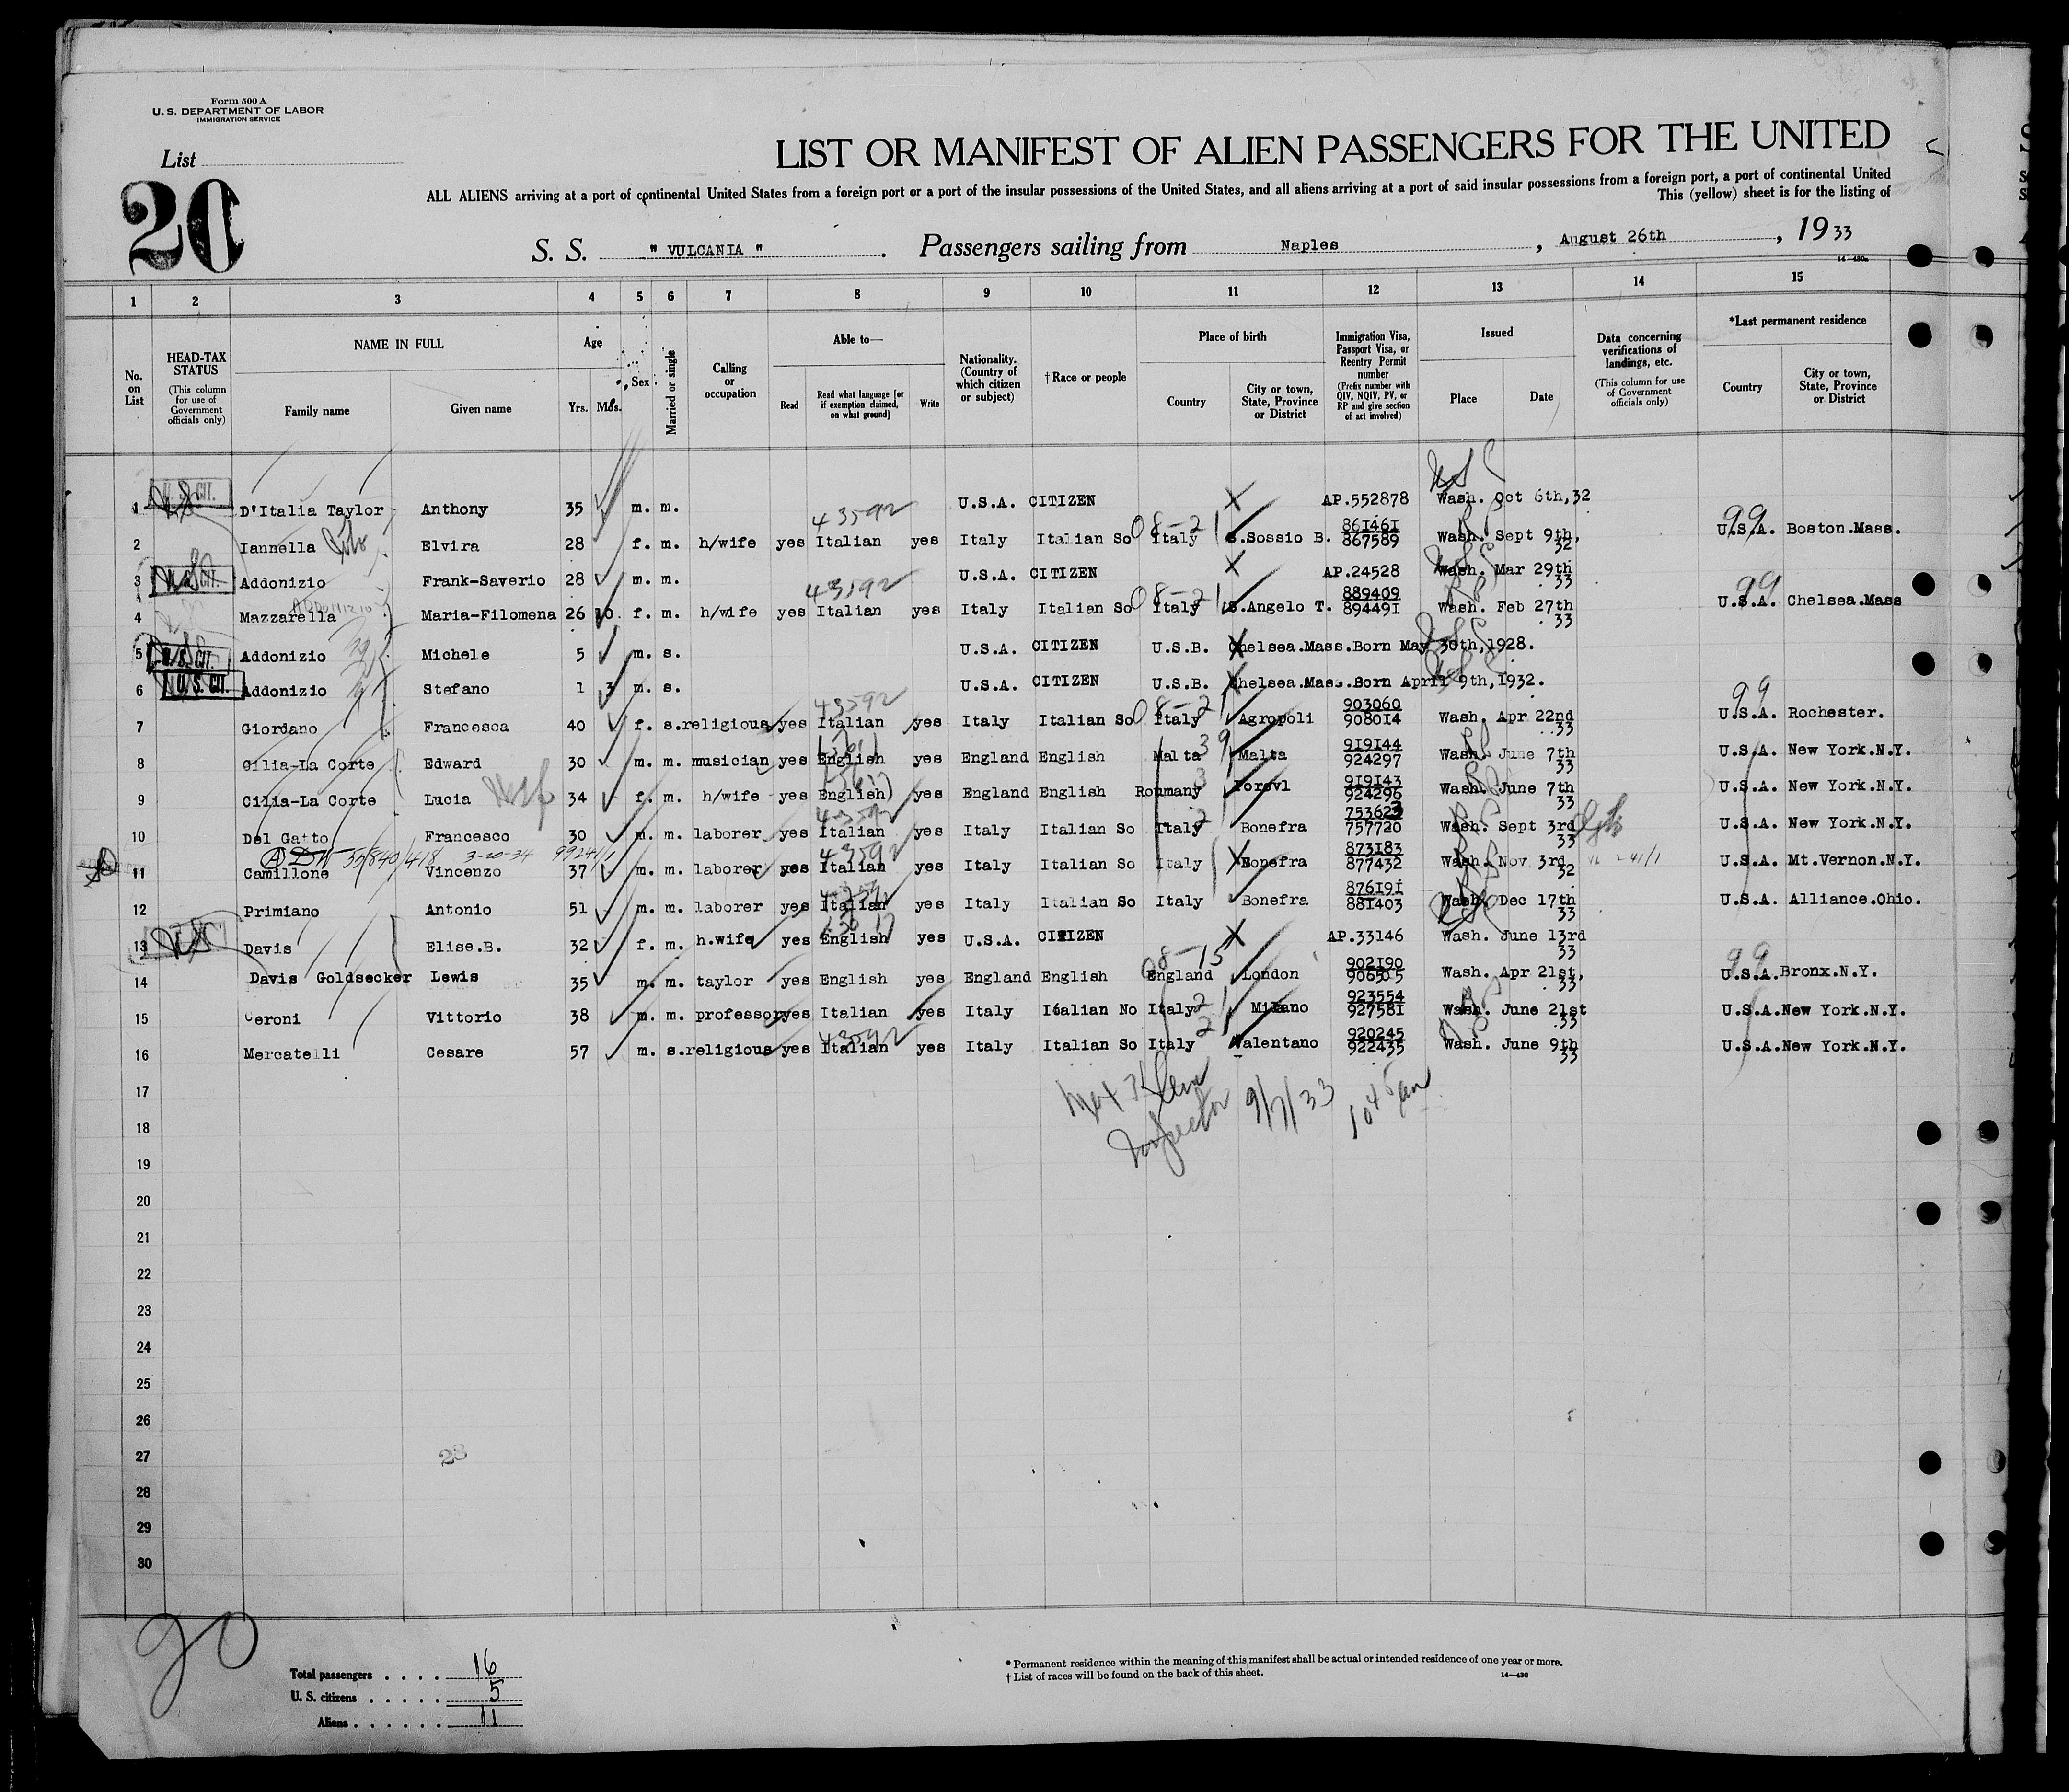 Form 500 A
U. S. DEPARTMENT OF LABOR
IMMIGRATION SERVICE
List
20
LIST OR MANIFEST OF ALIEN PASSENGERS FOR THE UNITED
ALL ALIENS arriving at a port of continental United States from a foreign port or a port of the insular possessions of the United States, and all aliens arriving at a port of said insular possessions from a foreign port, a port of continental United
This (yellow) sheet is for the listing of
S. S. " VULCANIA " . Passengers sailing from Naples , August 26th , 1933
14—430
1 2 3 4 5 6 7 8 9 10 11 12 13 14 15
No. on List
HEAD-TAX STATUS (This column for use of Government officials only)
NAME IN FULL
Family name Given name
Age
Yrs. Mos.
Sex
Married or single
Calling or occupation
Able to—
Read Read what language [or if exemption claimed, on what ground] Write
Nationality. (Country of which citizen or subject)
† Race or people
Place of birth
Country City or town, State, Province or District
Immigration Visa, Passport Visa, or Reentry Permit number (Prefix number with QIV, NQIV, PV, or RP and give section of act involved)
Issued
Place Date
Data concerning verifications of landings, etc. (This column for use of Government officials only)
*Last permanent residence
Country City or town, State, Province or District
1 U. S. CIT. D'Italia Taylor Anthony 35 m. m. U.S.A. CITIZEN AP.552878 Wash. Oct 6th,32
43592 08-21 99
2 Iannella Elvira 28 f. m. h/wife yes Italian yes Italy Italian So Italy S.Sossio B. 861461 867589 Wash. Sept 9th, 32 U.S.A. Boston.Mass.
3 U. S. CIT. Addonizio Frank-Saverio 28 m. m. U.S.A. CITIZEN AP.24528 Wash. Mar 29th 33
ADDONIZIO 43592 08-21 99
4 Mazzarella Maria-Filomena 26 10 f. m. h/wife yes Italian yes Italy Italian So Italy S.Angelo T. 889409 894491 Wash. Feb 27th 33 U.S.A. Chelsea.Mass
5 U. S. CIT. Addonizio Michele 5 m. s. U.S.A. CITIZEN U.S.B. Chelsea.Mass.Born May 30th,1928.
6 U. S. CIT. Addonizio Stefano 1 3 m. s. U.S.A. CITIZEN U.S.B. Chelsea.Mass.Born April 9th,1932.
43592 08-21 99
7 Giordano Francesca 40 f. s. religious yes Italian yes Italy Italian So Italy Agropoli 903060 908014 Wash. Apr 22nd 33 U.S.A. Rochester.
8 Cilia-La Corte Edward 30 m. m. musician yes English yes England English Malta 39 Malta 919144 924297 Wash. June 7th 33 U.S.A. New York.N.Y.
9 Cilia-La Corte Lucia 34 f. m. h/wife yes English yes England English Roumany 919143 924296 Wash. June 7th 33 U.S.A. New York.N.Y.
43592
10 Del Gatto Francesco 30 m. m. laborer yes Italian yes Italy Italian So Italy Bonefra 753623 757720 Wash. Sept 3rd 33 U.S.A. New York.N.Y.
55840/418 3-20-34 43592
11 Camillone Vincenzo 37 m. m. laborer yes Italian yes Italy Italian So Italy Bonefra 873183 877432 Wash. Nov 3rd 32 U.S.A. Mt.Vernon.N.Y.
12 Primiano Antonio 51 m. m. laborer yes Italian yes Italy Italian So Italy Bonefra 876191 881403 Wash. Dec 17th 33 U.S.A. Alliance.Ohio.
13 Davis Elise.B. 32 f. m. h.wife yes English yes U.S.A. CITIZEN AP.33146 Wash. June 13rd 33
08-15 99
14 Davis Goldsecker Lewis 35 m. m. taylor yes English yes England English England London 902190 906505 Wash. Apr 21st, 33 U.S.A. Bronx.N.Y.
15 Ceroni Vittorio 38 m. m. professor yes Italian yes Italy Italian No Italy Milano 923554 927581 Wash. June 21st 33 U.S.A. New York.N.Y.
43592
16 Mercatelli Cesare 57 m. s. religious yes Italian yes Italy Italian So Italy Valentano 920245 922435 Wash. June 9th 33 U.S.A. New York.N.Y.
17
Inspector 9/7/33 10 45 am
18
19
20
21
22
23
24
25
26
27
28
28
29
30
20
Total passengers . . . . 16
U. S. citizens . . . . . 5
Aliens . . . . . . 11
* Permanent residence within the meaning of this manifest shall be actual or intended residence of one year or more.
† List of races will be found on the back of this sheet.
14—430